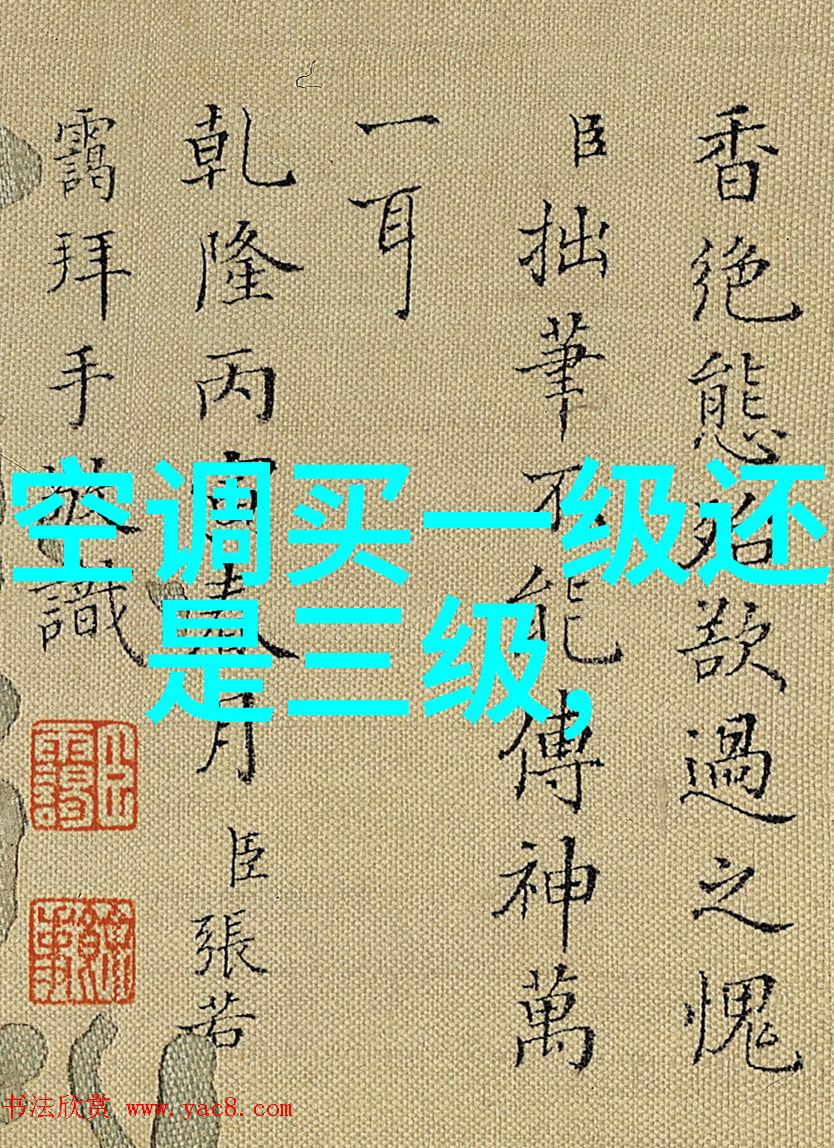 香絶態殆欲過之愧
臣拙筆不能傳神萬
一耳
乾隆丙寅春月臣張若
靄拜手敬識
空调买一级还
是三级,
书法欣赏 www.yac8.com